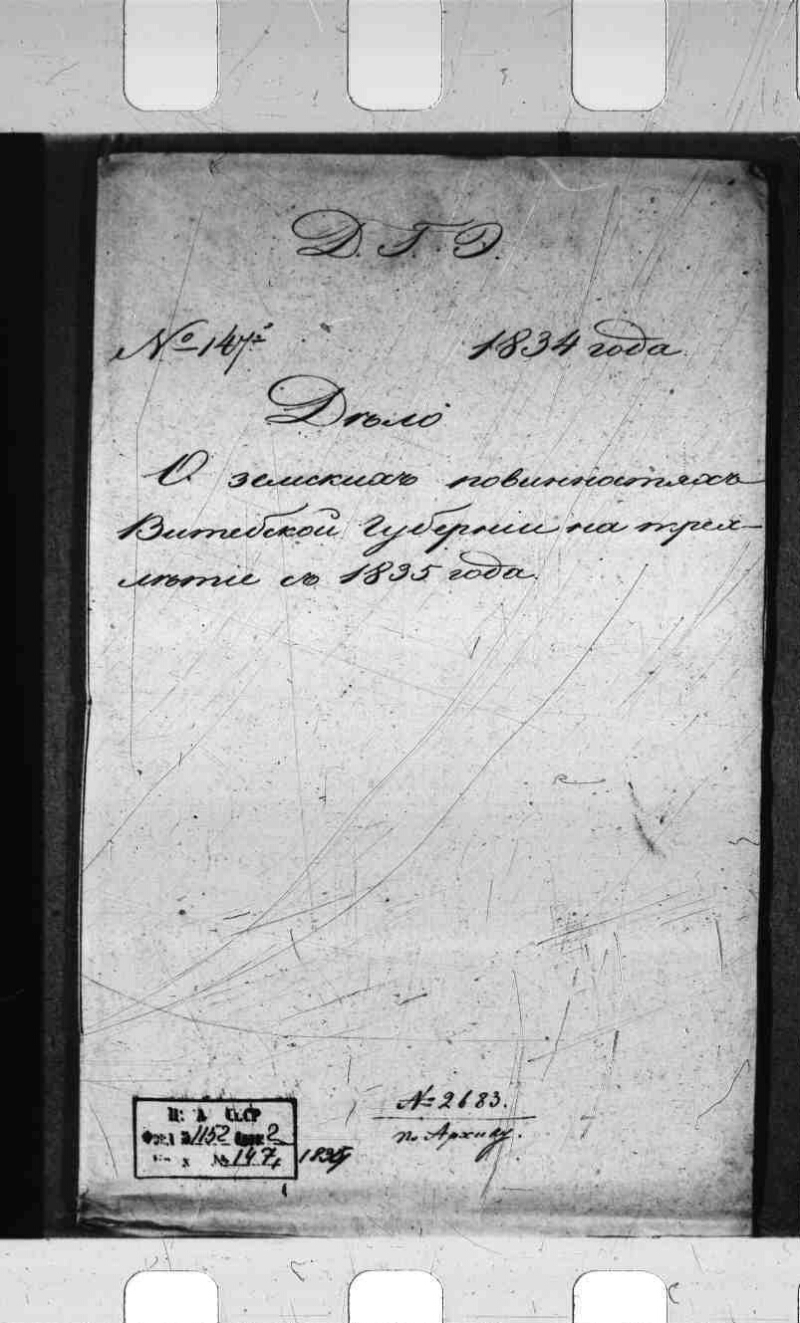 Д. Г. Э.
№ 147
1834 года
Дѣло
О земскихъ повинностяхъ
Витебской Губерніи на трех-
лѣтіе съ 1835 года.
№ 2683.
по Архиву.
СССР
Фонд № 1152 Опись 2
№ 147, 1834